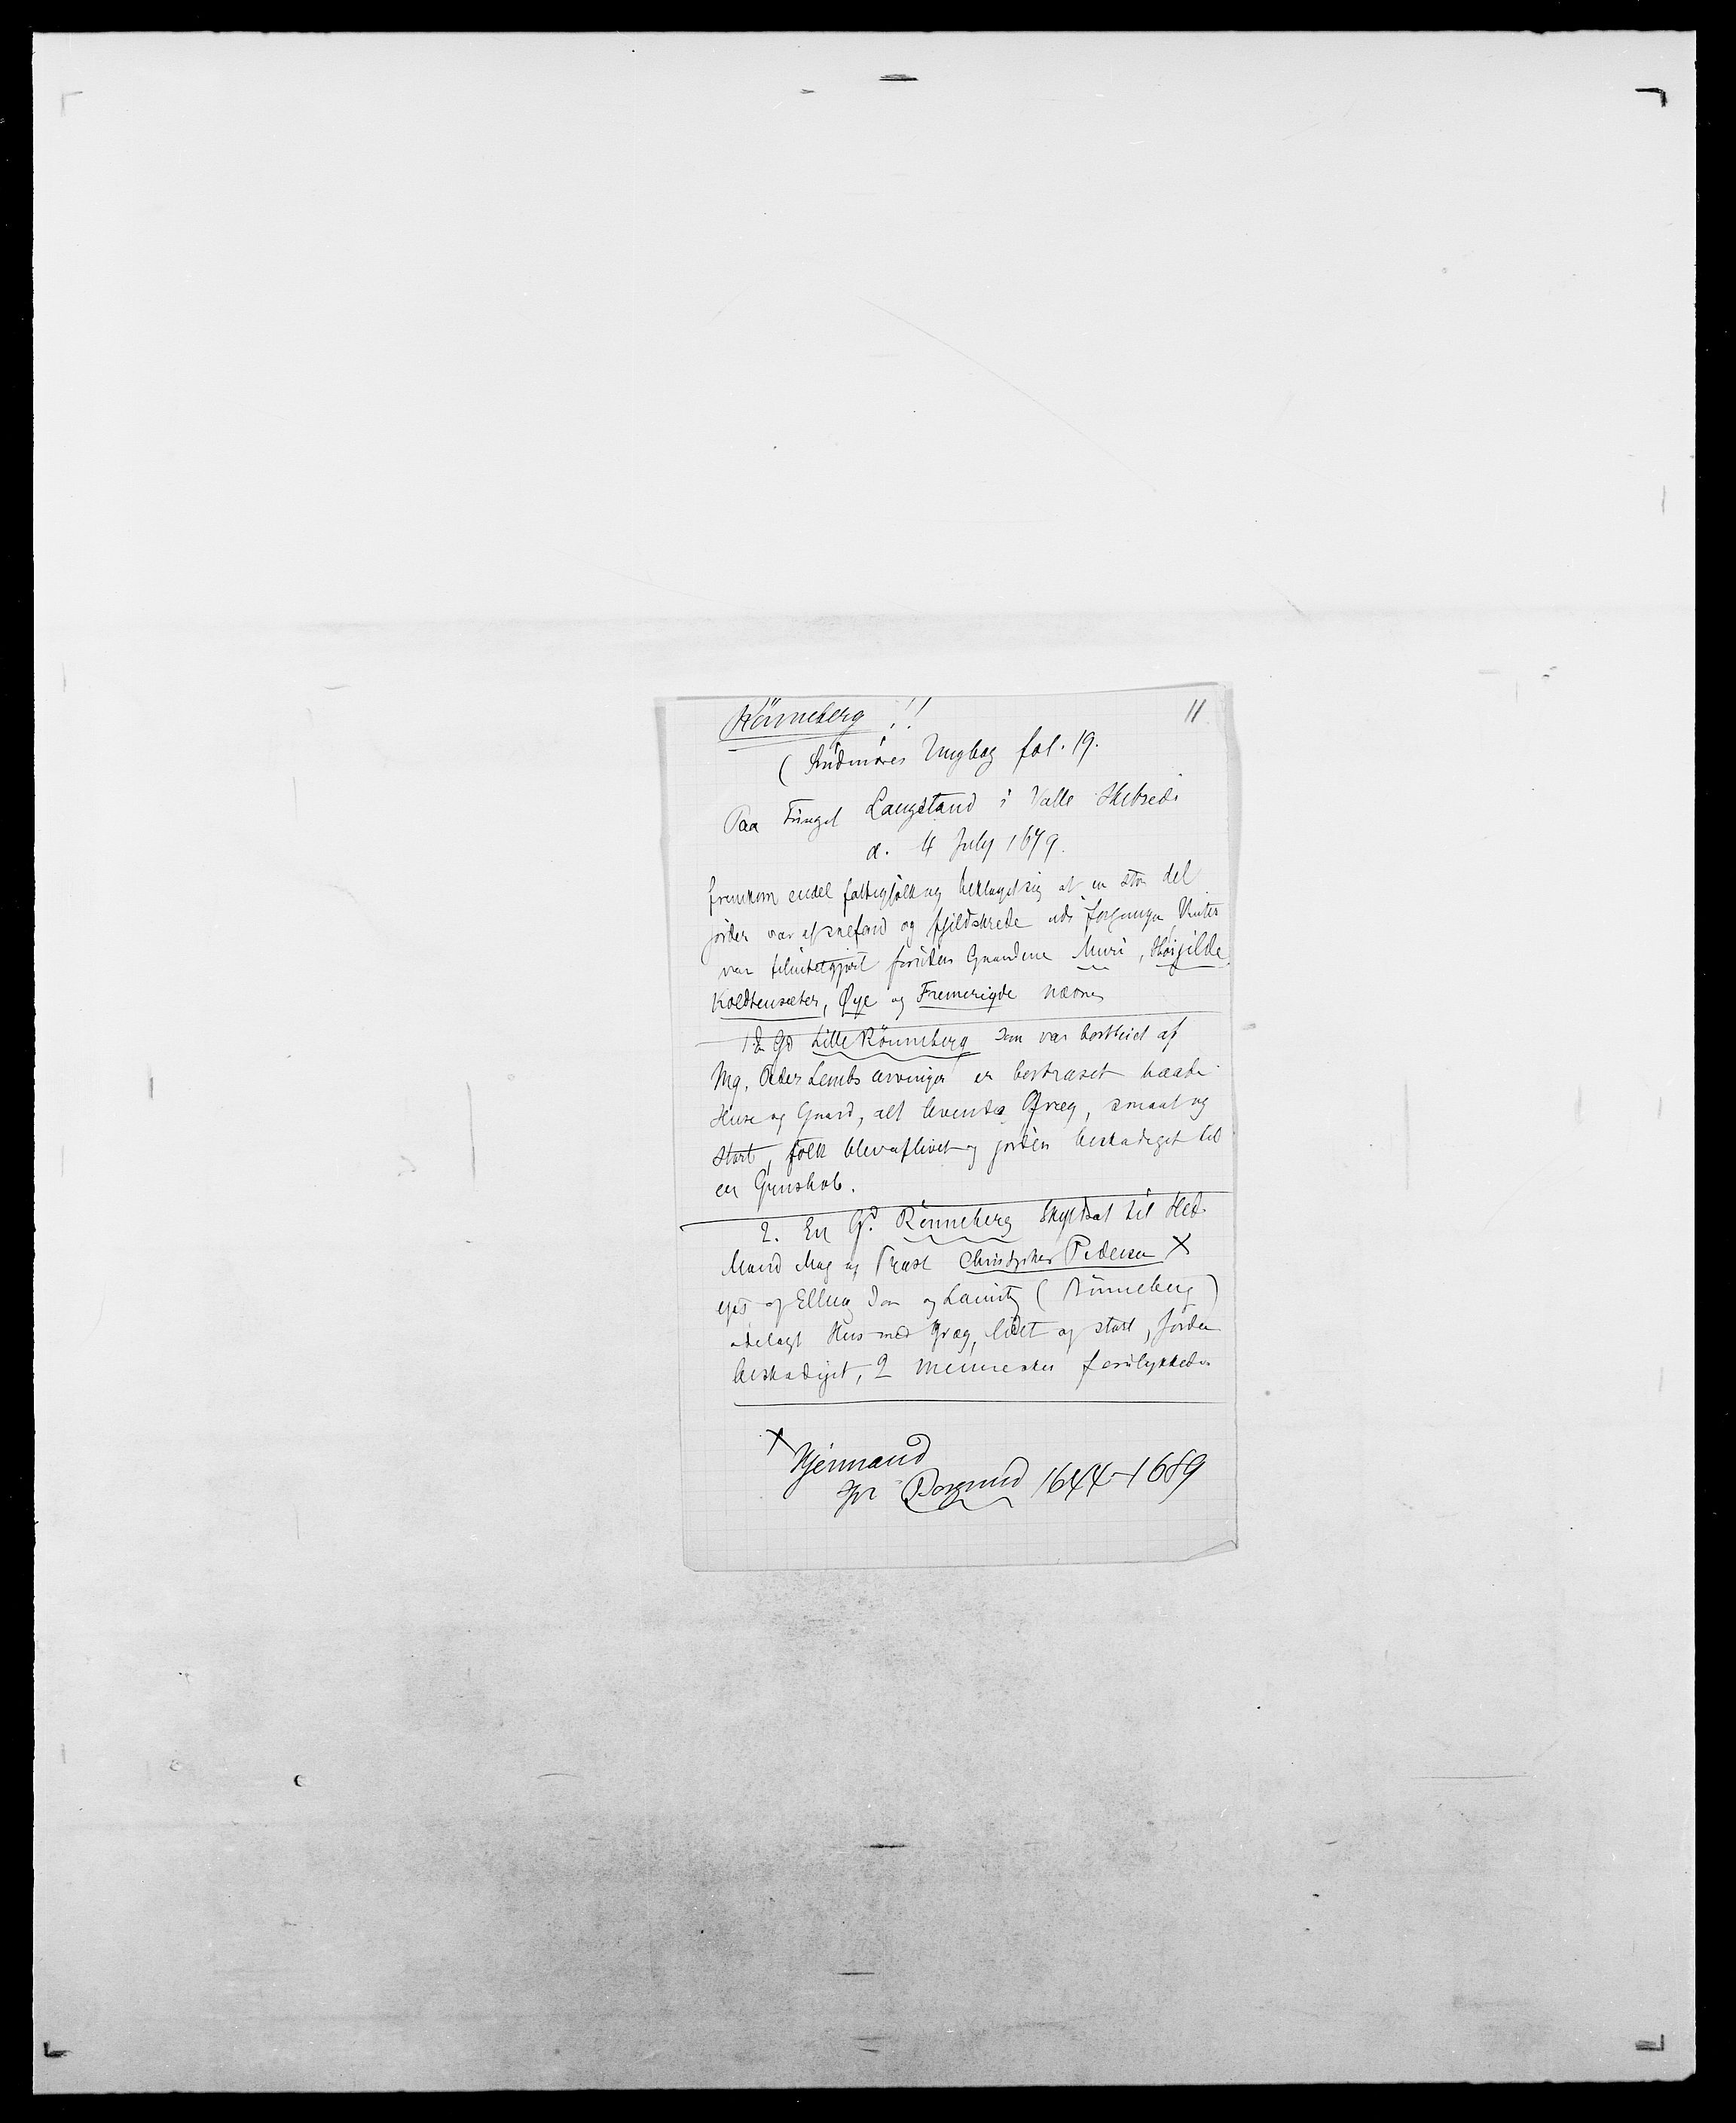 Rönneberg !! 11
(Søndmøres Tingbog fol. 19.
Paa Tinget Langstand i Valle Skibrede
d. 4 July 1679.
fremkom endel fattigfolk og beklaget sig at en stor del
jorder var af snefond og fjeldskrede udi forgangne Vinter
var tilintetgjort foruden Gaardene Muri, Høigilde
Koldtensæter, Øye og Fremerigde nævnes
1. En Gd Lille Rönneberg som var bortbeiet af
Mg. Peder Lembs arvinger er bortraset baade
Huse og Gaard, alt levende Qvæg, smaat og
stort, folk blev aflivet og jorden beskadiget til
en Grushob.
2. En Gd. Rönneberg Skyldsat til Hed.
Mand Mag og Provst Christopher Pedersen X
af Elling og Lauritz (Rönneberg)
ødelagt Hus med Qvæg, lidet og stort, Jorden
beskadiget, 2 mennesker forulykkede
X Hjermand
Spr Borgund 1644-1689